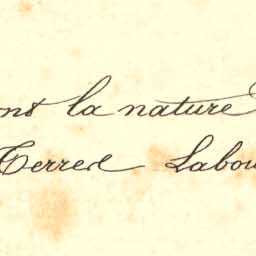 ont la nature
Terres Labou